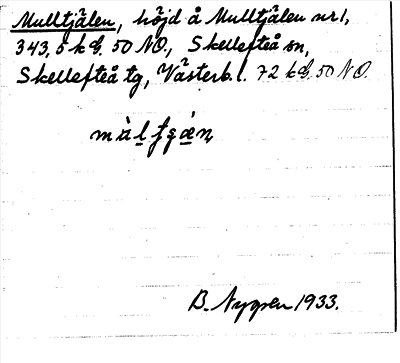 Mulltjälen, höjd å Mulltjälen nr 1,
343,5 kbl. 50 NO., Skellefteå sn,
Skellefteå tg, Västerb. l. 72 kbl. 50 NO.
B. Nygren 1933.